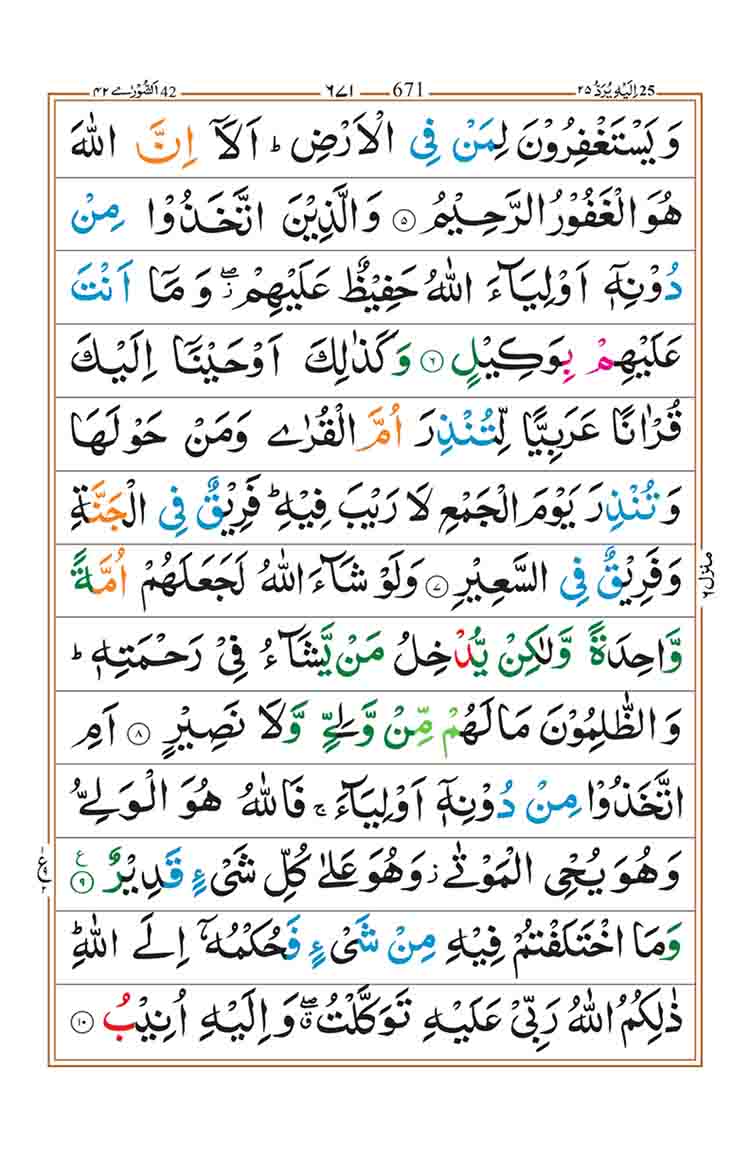 25 اِلَيْهِ يُرَدُّ ٢٥ 671 ٦٧١ 42 اَلشُّوْرٰى ٤٢
وَ يَسْتَغْفِرُوْنَ لِمَنْ فِى الْاَرْضِ ؕ اَلَاۤ اِنَّ اللّٰهَ
هُوَ الْغَفُوْرُ الرَّحِيْمُ ۝٥ وَالَّذِيْنَ اتَّخَذُوْا مِنْ
دُوْنِهٖۤ اَوْلِيَآءَ اللّٰهُ حَفِيْظٌ عَلَيْهِمْ ۖ وَ مَاۤ اَنْتَ
عَلَيْهِمْ بِوَكِيْلٍ ۝٦ وَ كَذٰلِكَ اَوْحَيْنَاۤ اِلَيْكَ
قُرْاٰنًا عَرَبِيًّا لِّتُنْذِرَ اُمَّ الْقُرٰى وَمَنْ حَوْلَهَا
وَ تُنْذِرَ يَوْمَ الْجَمْعِ لَا رَيْبَ فِيْهِ ؕ فَرِيْقٌ فِى الْجَنَّةِ
وَ فَرِيْقٌ فِى السَّعِيْرِ ۝٧ وَلَوْ شَآءَ اللّٰهُ لَجَعَلَهُمْ اُمَّةً
وَّاحِدَةً وَّلٰكِنْ يُّدْخِلُ مَنْ يَّشَآءُ فِىْ رَحْمَتِهٖ ؕ
وَ الظّٰلِمُوْنَ مَا لَهُمْ مِّنْ وَّلِىٍّ وَّلَا نَصِيْرٍ ۝٨ اَمِ
اتَّخَذُوْا مِنْ دُوْنِهٖۤ اَوْلِيَآءَ ۚ فَاللّٰهُ هُوَ الْوَلِىُّ
وَ هُوَ يُحْىِ الْمَوْتٰى ز وَهُوَ عَلٰى كُلِّ شَىْءٍ قَدِيْرٌ ۝٩ ع
وَمَا اخْتَلَفْتُمْ فِيْهِ مِنْ شَىْءٍ فَحُكْمُهٗۤ اِلَى اللّٰهِ ؕ
ذٰلِكُمُ اللّٰهُ رَبِّىْ عَلَيْهِ تَوَكَّلْتُ ۖ ق وَ اِلَيْهِ اُنِيْبُ ۝١٠
منزل ٦
ع ١ ٩ ٢